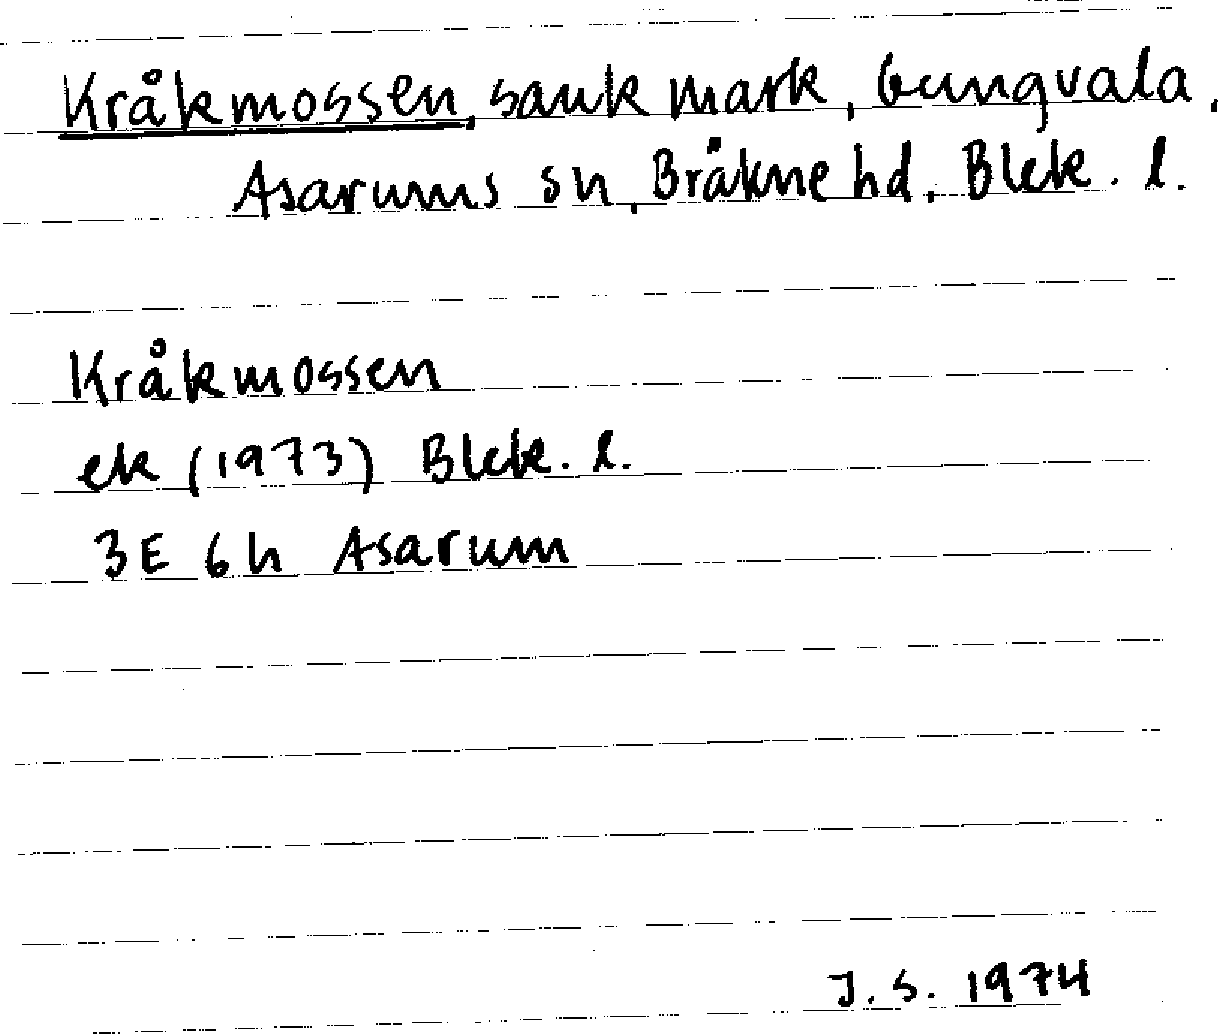 Kråkmossen, sank mark, Gungvala,
Asarums sn, Bräkne hd, Blek. l.
Kråkmossen
ek (1973) Blek. l.
3E 6h Asarum
J.S. 1974